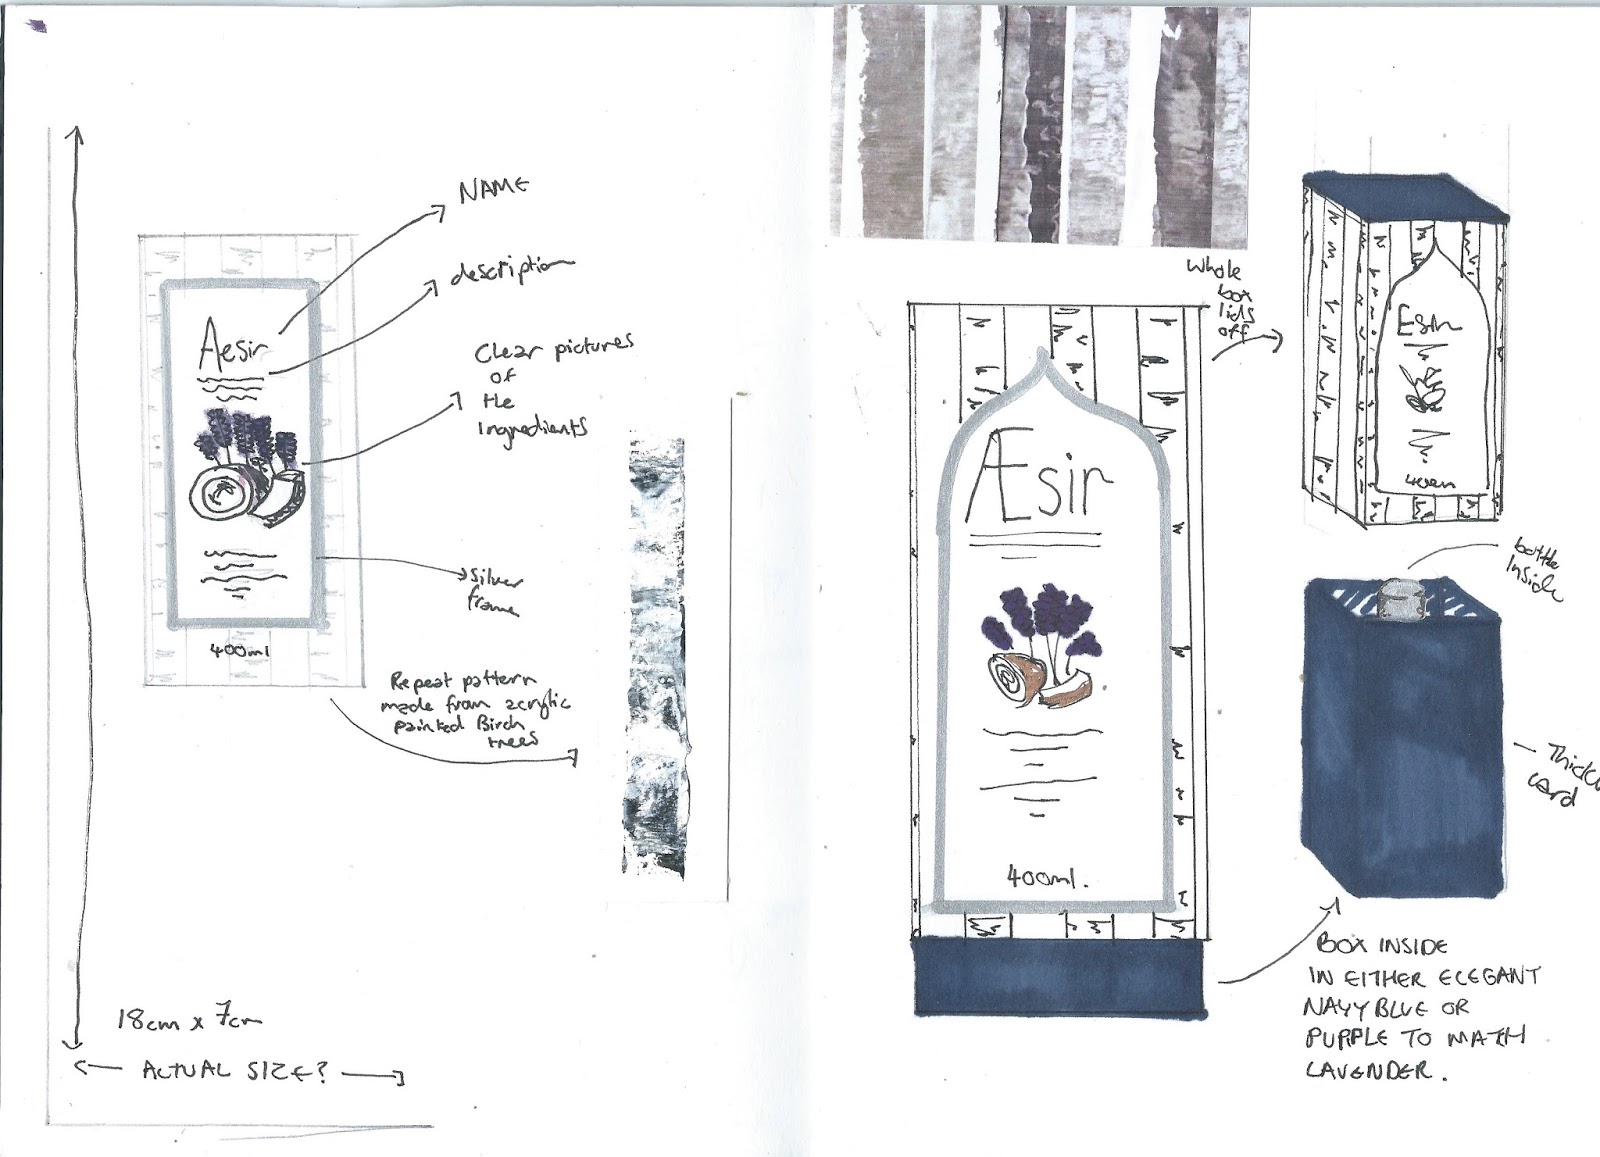 NAME
description
Clear pictures
of
the
ingredients
Aesir
Silver
frame
400ml
Repeat pattern
made from acrylic
painted Birch
trees
18cm x 7cm
ACTUAL SIZE?
whole
box
lids
off
Æsir
400ml.
Æsir
400ml
bottle
inside
Thick
card
BOX INSIDE
IN EITHER ELEGANT
NAVY BLUE OR
PURPLE TO MATH
LAVENDER.